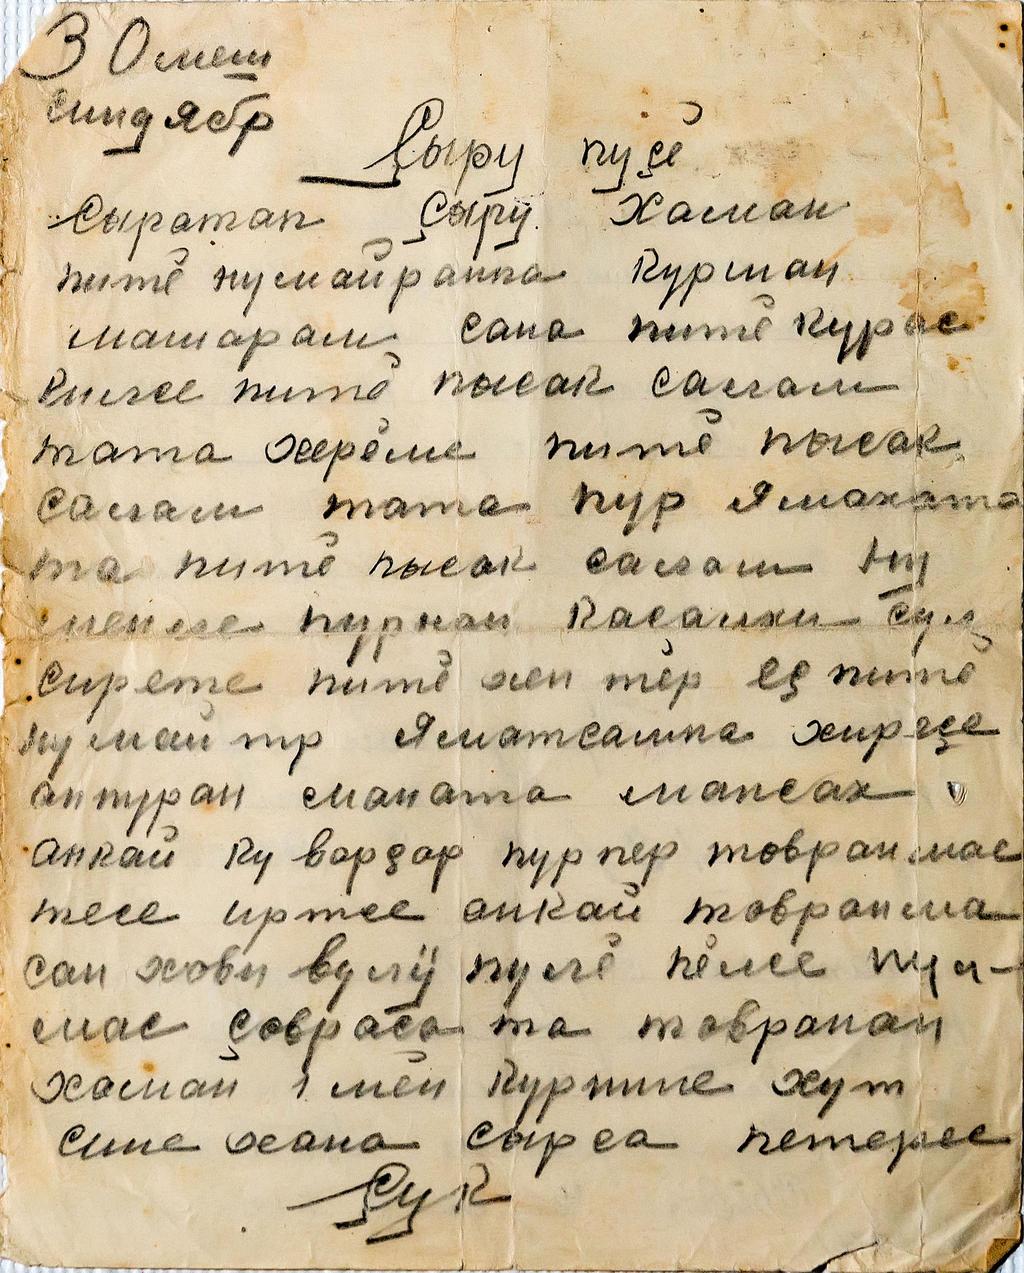 30 меш
синдябр
Ҫыру пуҫĕ
Сыратап Ҫыру Хаман
питĕ нумайранпа Курман
машарам сана питĕ курас
килсе питĕ пысак салам
тата херĕме питĕ пысак
салам тата пур Ямахата
та питĕ пысак салам Ну
менле пурнан Касамхи сул
сирете питĕ хен тĕр еҫ питĕ
нумай тр Яматсампа хирҫе
антуран маната мансах
анкай ку вордар пурпер товранмас
тесе иртсе анкай товранма
сан хови вулӳ пулĕ пĕлсе пул-
мас ҫовраса та товранан
хаман 1 мĕн курнине хут
сине хана сырса петерсе
Ҫук